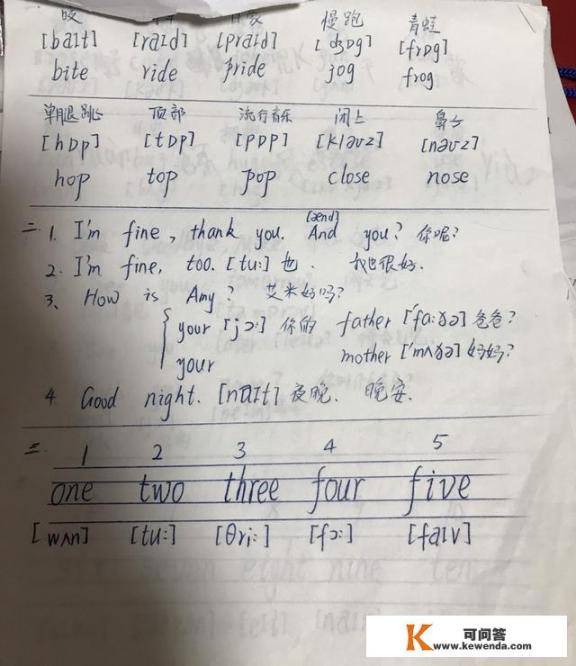 咬
慢跑 青蛙
[baɪt] [raɪd] [praɪd] [dʒɒg] [frɒg]
bite ride pride jog frog
单腿跳 顶部 流行音乐 闭上 鼻子
[hɒp] [tɒp] [pɒp] [kləʊz] [nəʊz]
hop top pop close nose
[ænd]
二. 1. I'm fine, thank you. And you? 你呢?
2. I'm fine, too. [tu:] 也. 我也很好.
3. How is Amy? 艾米好吗?
your [jɔ:] 你的 father ['fɑ:ðə] 爸爸?
your mother ['mʌðə] 妈妈?
4. Good night. [naɪt] 夜晚. 晚安.
三. 1 2 3 4 5
one two three four five
[wʌn] [tu:] [θri:] [fɔ:] [faɪv]
可问答
www.kewenda.com